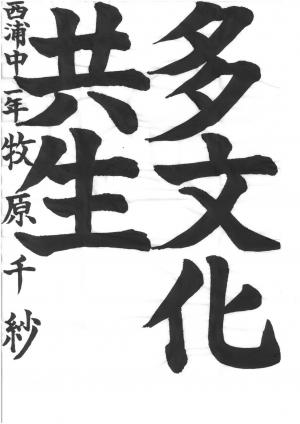 多文化
共生
西浦中一年牧原千紗